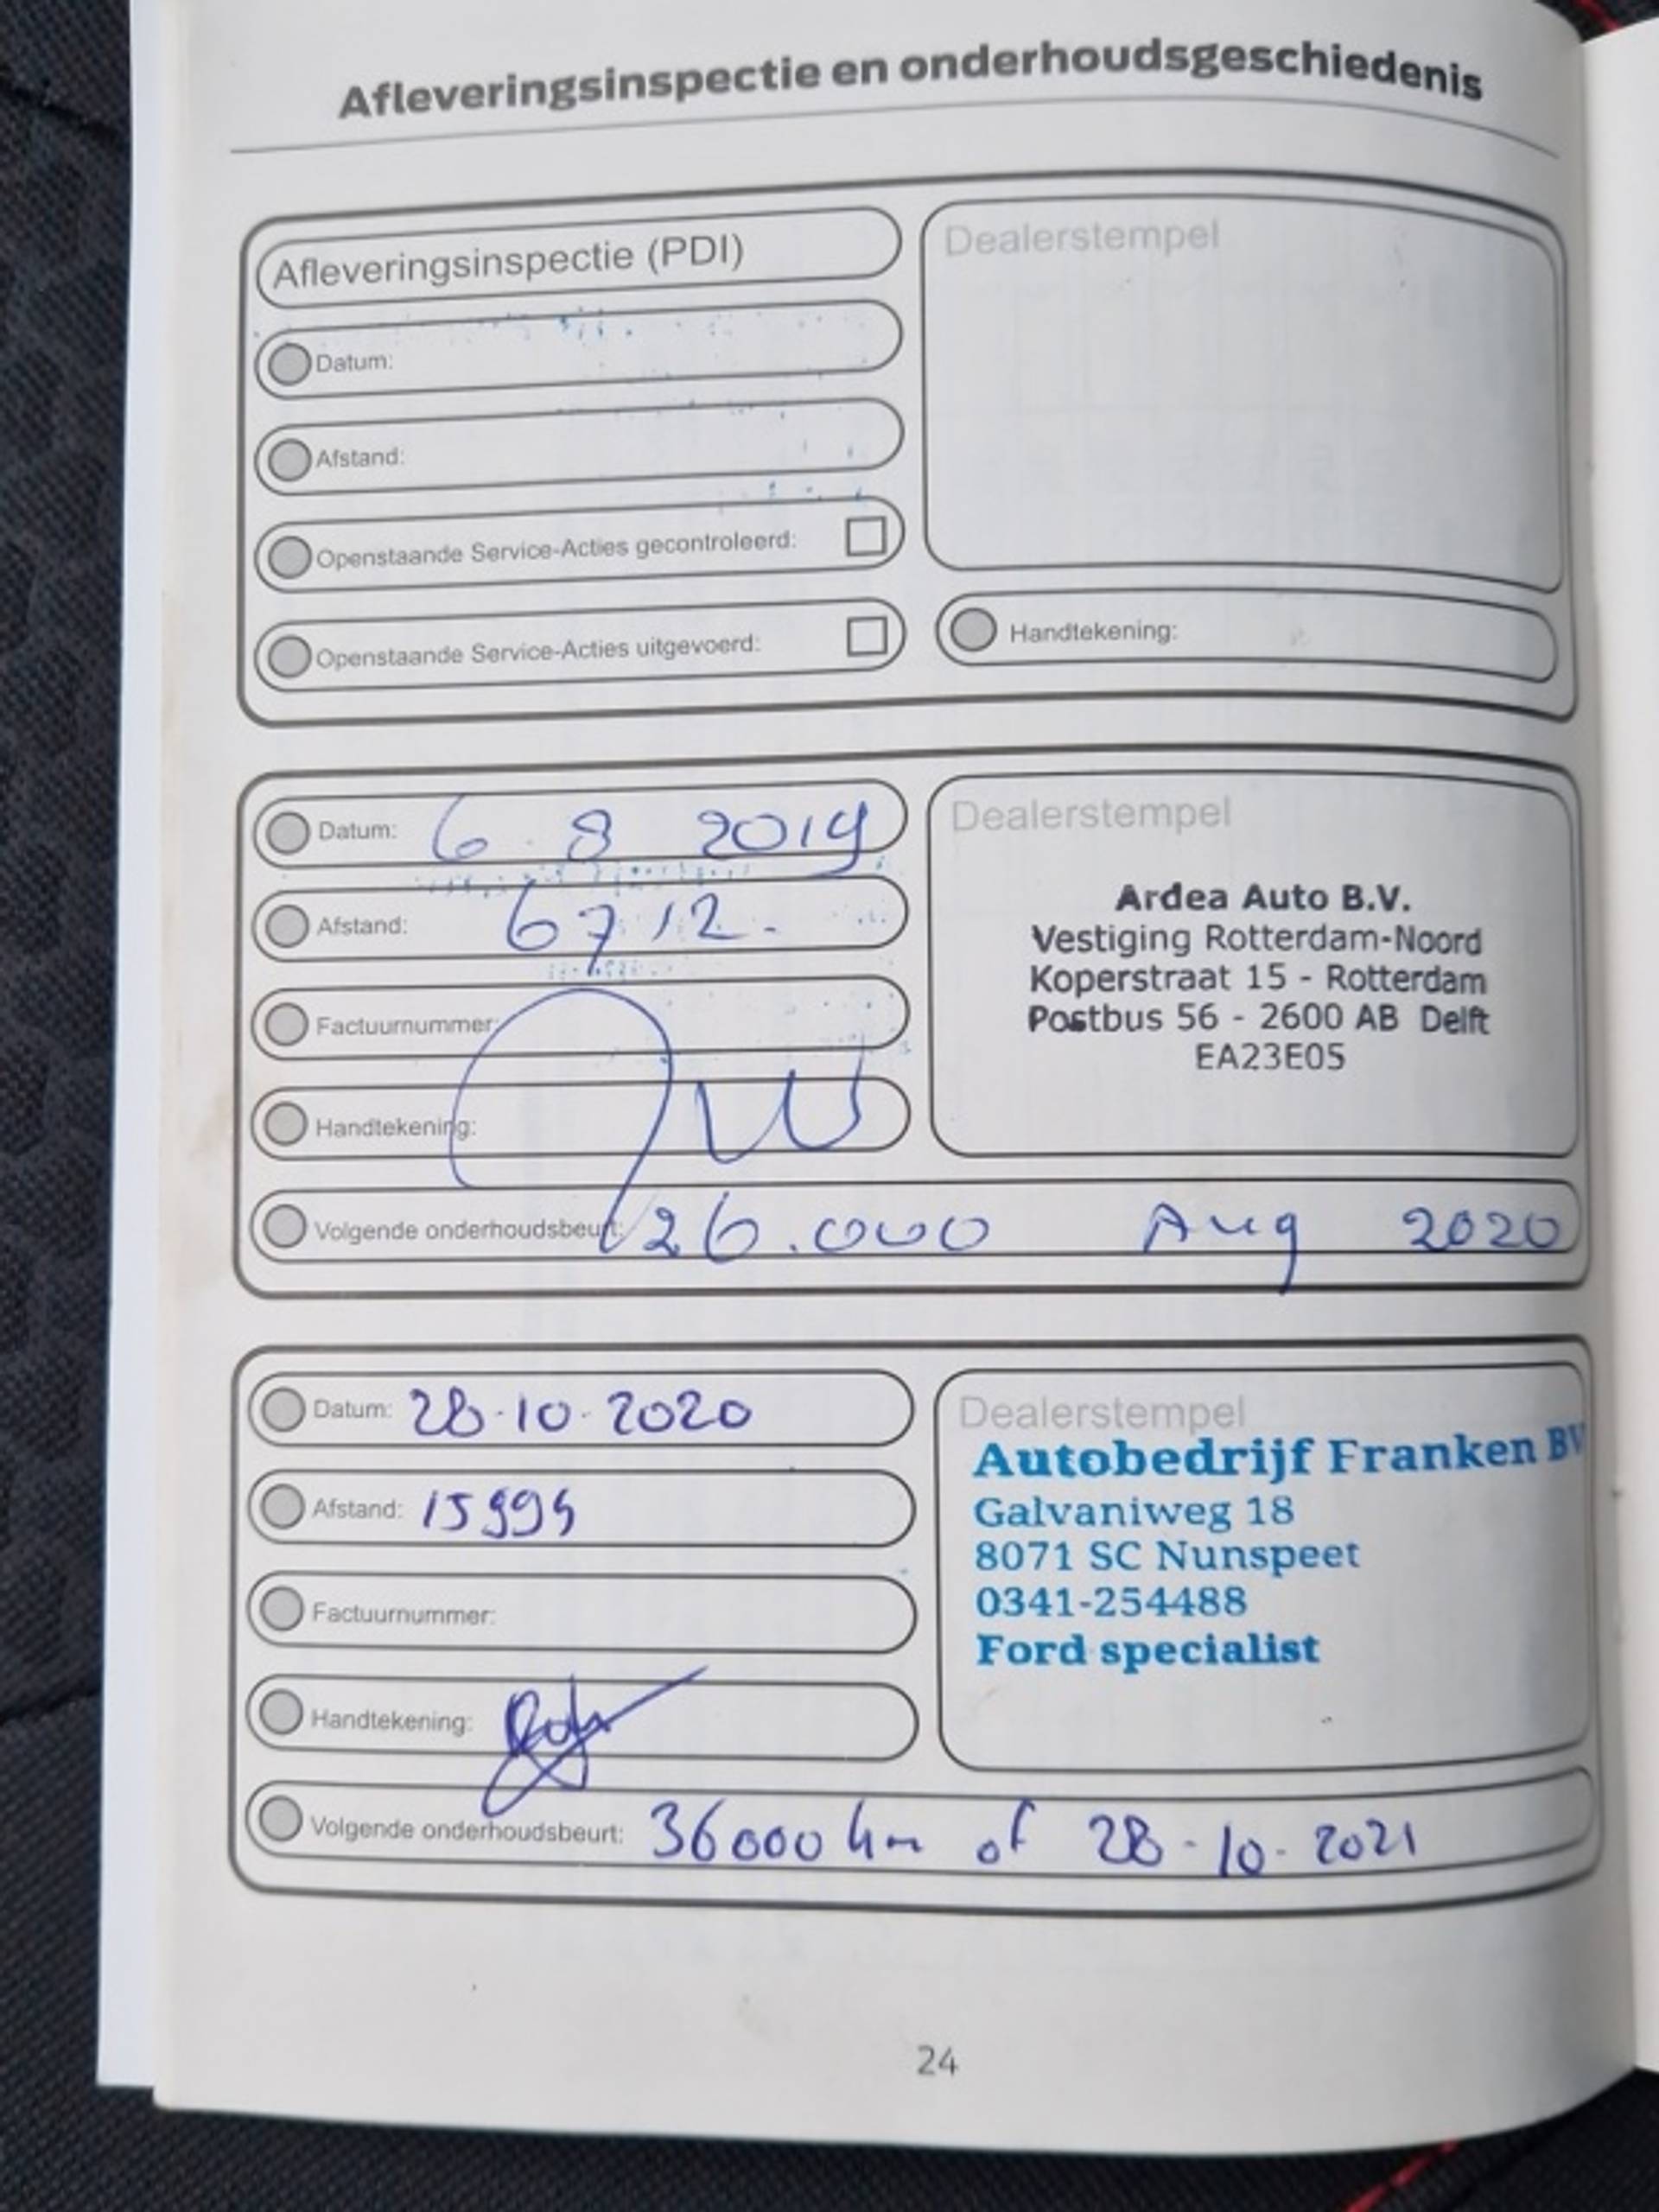 Afleveringsinspectie en onderhoudsgeschiedenis
Afleveringsinspectie (PDI)
Dealerstempel
Datum:
Afstand:
Openstaande Service-Acties gecontroleerd:
Openstaande Service-Acties uitgevoerd:
Handtekening:
Datum: 6 8 2019
Afstand: 6712.
Factuurnummer:
Handtekening:
Dealerstempel
Ardea Auto B.V.
Vestiging Rotterdam-Noord
Koperstraat 15 - Rotterdam
Postbus 56 - 2600 AB Delft
EA23E05
Volgende onderhoudsbeurt: 26.000 Aug 2020
Datum: 28-10-2020
Afstand:
Factuurnummer:
Handtekening:
Dealerstempel
Autobedrijf Franken BV
Galvaniweg 18
8071 SC Nunspeet
0341-254488
Ford specialist
Volgende onderhoudsbeurt: 36000 km of 28-10-2021
24